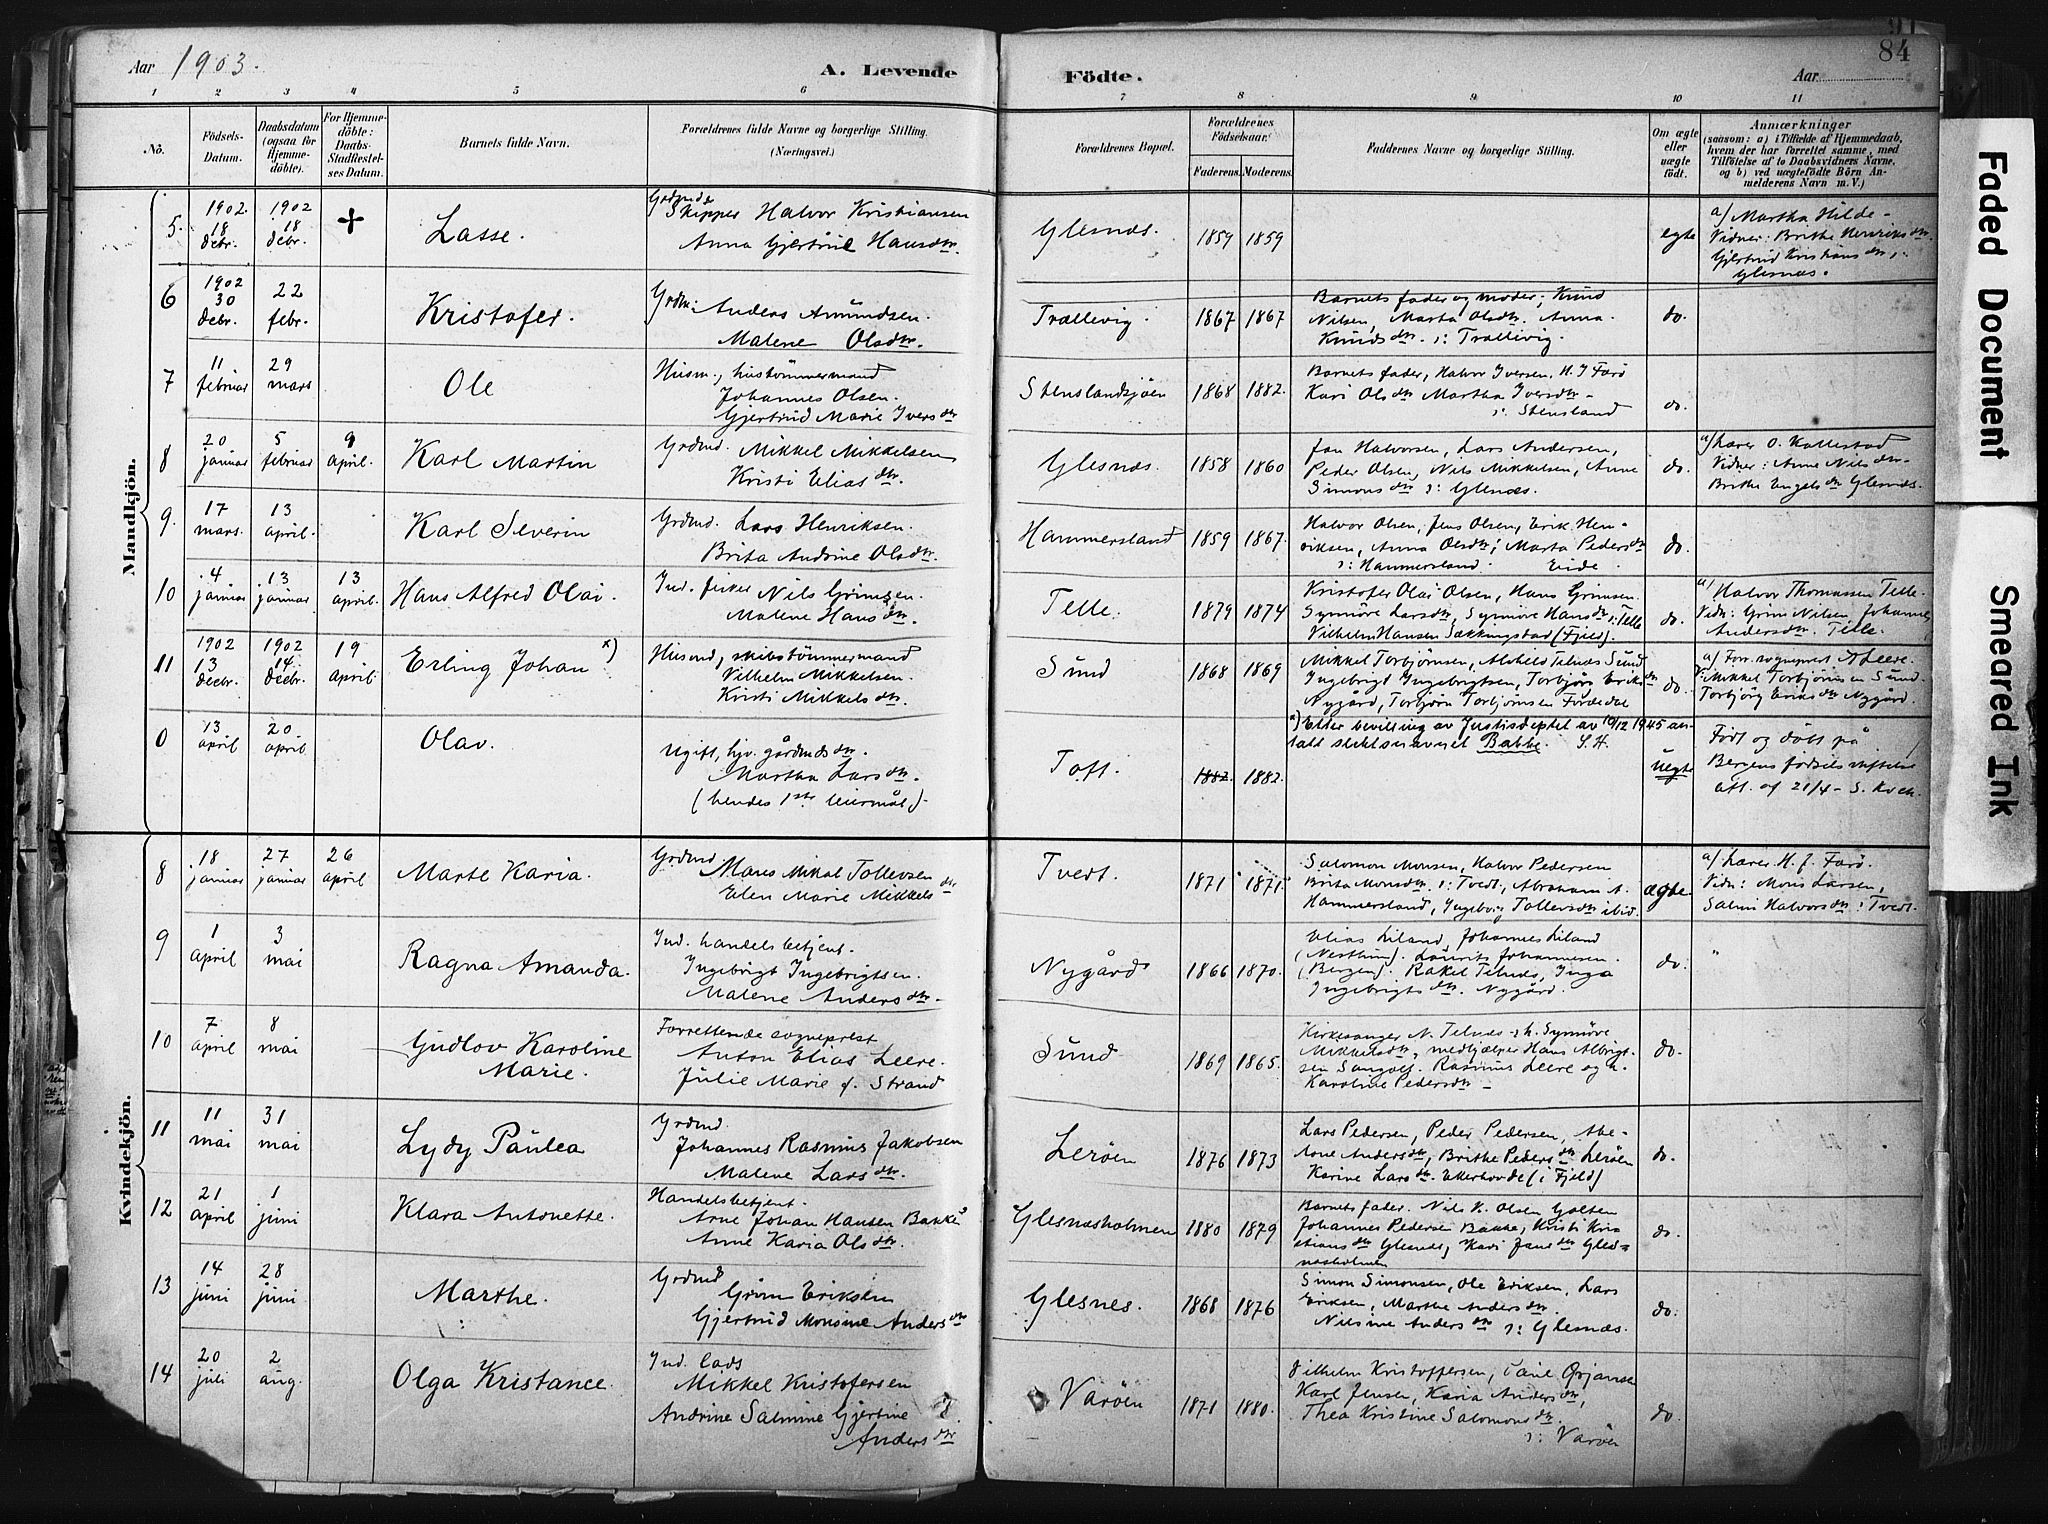 84
Aar 1903.
A. Levende
Födte.
Aar
1 2 3 4 5 6 7 8 9 10 11
No.
Födsels-
Datum.
Daabsdatum
(ogsaa for
Hjemme-
döbte).
For Hjemme-
döbte:
Daabs-
Stadfæstel-
ses Datum.
Barnets fulde Navn.
Forældrenes fulde Navne og borgerlige Stilling.
(Næringsvei.)
Forældrenes Bopæl.
Forældrenes
Födselsaar.
Faderens. Moderens.
Faddernes Navne og borgerlige Stilling.
Om ægte
eller
uægte
födt.
Anmærkninger
(saasom: a) i Tilfælde af Hjemmedaab,
hvem der har forrettet samme, med
Tilföielse af to Daabsvidners Navne,
og b) ved uægtefödte Börn An-
melderens Navn m. V.)
Mandkjön.
5.
1902
18
debr.
1902
18
debr.
Lasse.
Skipper Halvor Kristiansen
Anna Gjertrüe Hansdtr.
Glesnæs.
1859 1859
egte
a/ Martha Hilde -
Vidner: Brithe Henriksdtr.
Gjertrud Kristiansdtr.
Glesnæs.
6
1902
30
debr.
22
febr.
Kristofer.
Grdm: Anders Amundsen.
Malene Olsdtr.
Trællevig.
1867 1867
Barnets fader og moder; Knüd
Nilsen, Marta Olsdtr. Anna
Knüdsdtr. Trællevig.
do.
7
11
februar
29
mars
Ole
Husm., hustömmermand
Johannes Olsen.
Gjertrud Marie Iversdtr
Stenslandsjöen
1868 1882.
Barnets fader, Halvor Iversen, H. J. Farö
Kari Olsdtr Martha Iversdtr -
Stensland
do.
8
20
januar
5
februar
9
april.
Karl Martin
Grdmd. Mikkel Mikkelsen
Kristi Eliasdtr.
Glesnæs.
1858 1860
Jan Halvorsen, Lars Andersen,
Peder Olsen, Nils Mikkelsen, Anne
Simonsdtr Glesnæs.
do.
a/ Lærer O. Kallestad
Vidner: Anne Nilsdtr -
Brithe Engelsdtr Glesnæs.
9.
17
mars.
13
april.
Karl Severin
Grdmd. Lars Henriksen.
Brita Andrine Olsdtr.
Hammersland
1859 1867.
Halvor Olsen, Jens Olsen, Erik Hen-
riksen, Anna Olsdtr; Marta Pedersdtr
Hammersland. Eide.
do.
10
4
januar
13
januar
13
april.
Hans Alfred Olai.
Ind. fisker Nils Grimsen.
Malene Hansdtr.
Telle.
1879 1874
Kristofer Olai Olsen, Hans Grimsen.
Synnöve Larsdtr, Synnöve Hansdtr Telle
Vilhelm Hansen Sækkingstad (Fjeld).
do.
a/ Halvor Thomassen Telle.
Vidn: Grim Nilsen, Johanne
Andersdtr. Telle.
11
1902
13
debr.
1902
14
debr.
19
april
Erling Johan x)
Husmd, skibstömmermand
Vilhelm Mikkelsen.
Kristi Mikkelsdtr.
Sünd
1868 1869
Mikkel Torbjörnsen, Alshild Telnæs Sünd
Ingebrigt Ingebrigtsen, Torbjörg Eriksdtr
Nygård, Torbjörn Torbjörnsen Fördedal
do.
a/ Forr. sognepræst A Leere.
V: Mikkel Torbjörnsen Sünd
Torbjörg Eriksdtr Nygård.
0
13
april
20
april
Olav.
Ugift, hjv. gårdmdsdtr.
Martha Larsdtr.
(hendes 1ste leiermål).
Toft.
1882. 1882.
x) Etter bevilling av Justisdeptet av 10/12 1945 an-
tatt slektsnavnet Bakke. S.H.
Uegte
Födt og döbt på
Bergens födselsstiftelse
att. af 21/4 - S. Koch.
Kvindekjön.
8
18
januar
27
januar
26
april
Marte Karia.
Grdmd
Mons Mikal Tollevsen
Elen Marie Mikkelsdtr
Tvedt.
1871 1871.
Salomon Monsen, Halvor Pedersen
Brita Monsdtr. Tvedt, Abraham A.
Hammersland, Ingeborg Tollevsdtr ibid.
ægte.
a/ Lærer H. J. Farö.
Vidn: Mons Larsen,
Salmi Halvorsdtr: Tvedt.
9
1
april
3
mai
Ragna Amanda.
Ind. handelsbetjent.
Ingebrigt Ingebrigtsen.
Malene Andersdtr.
Nygård
1866 1870.
Elias Liland, Johannes Liland
Laurits Johannesen.
(Bergen). Rakel Telnæs, Inga
Ingebrigtsdtr. Nygård.
do.
"
10
7
april
8
mai
Gudlov Karoline
Marie.
Forrettende sogneprest
Anton Elias Leere.
Julie Marie f. Strand
Sünd
1869 1865.
Kirkesanger N. Telnæs - h. Synnöve
Mikkelsdtr, medhjælper Hans Albrigt-
sen Sangolt. Rasmus Leere og h.
Karoline Pedersdtr -
do.
11
11
mai
31
mai
Lydy Paulea
Grdmd.
Johannes Rasmus Jakobsen
Malene Larsdtr.
Leröen
1876 1873
Lars Pedersen, Peder Pedersen, Abe-
lone Andersdtr, Brithe Pedersdtr Leröen
Karine Larsdtr. Ekerhovde (i Fjeld)
do.
12
21
april
1
juni
Klara Antonette.
Handelsbetjent.
Arne Johan Hansen Bakke
Anne Karia Olsdtr.
Glesnæsholmen
1880 1879
Barnets fader. Nils K. Olsen Golten
Johannes Pedersen Bakke, Kristi Kris
tiansdtr Glesnæs, Kari Jansdtr Gles-
næsholmen
do.
13
14
juni
28
juni
Marthe.
Grdmd
Grim Eriksen
Gjertrüd Monsine Andersdtr
Glesnes.
1868 1876
Simon Simonsen, Ole Eriksen, Lars
Eriksen, Marthe Andersdtr.
Nilsine Andersdtr Glesnæs.
do.
14
20
juli
2
aug.
Olga Kristance.
Ind. lods
Mikkel Kristofersen
Andrine Salmine Gjertine
Andersdtr
Varöen
1871 1880.
Vilhelm Kristoffersen, Paul Örjansen
Karl Jensen, Karia Andersdtr,
Thea Kristine Salomonsdtr.
Varöen
do.
Faded Document
Smeared Ink